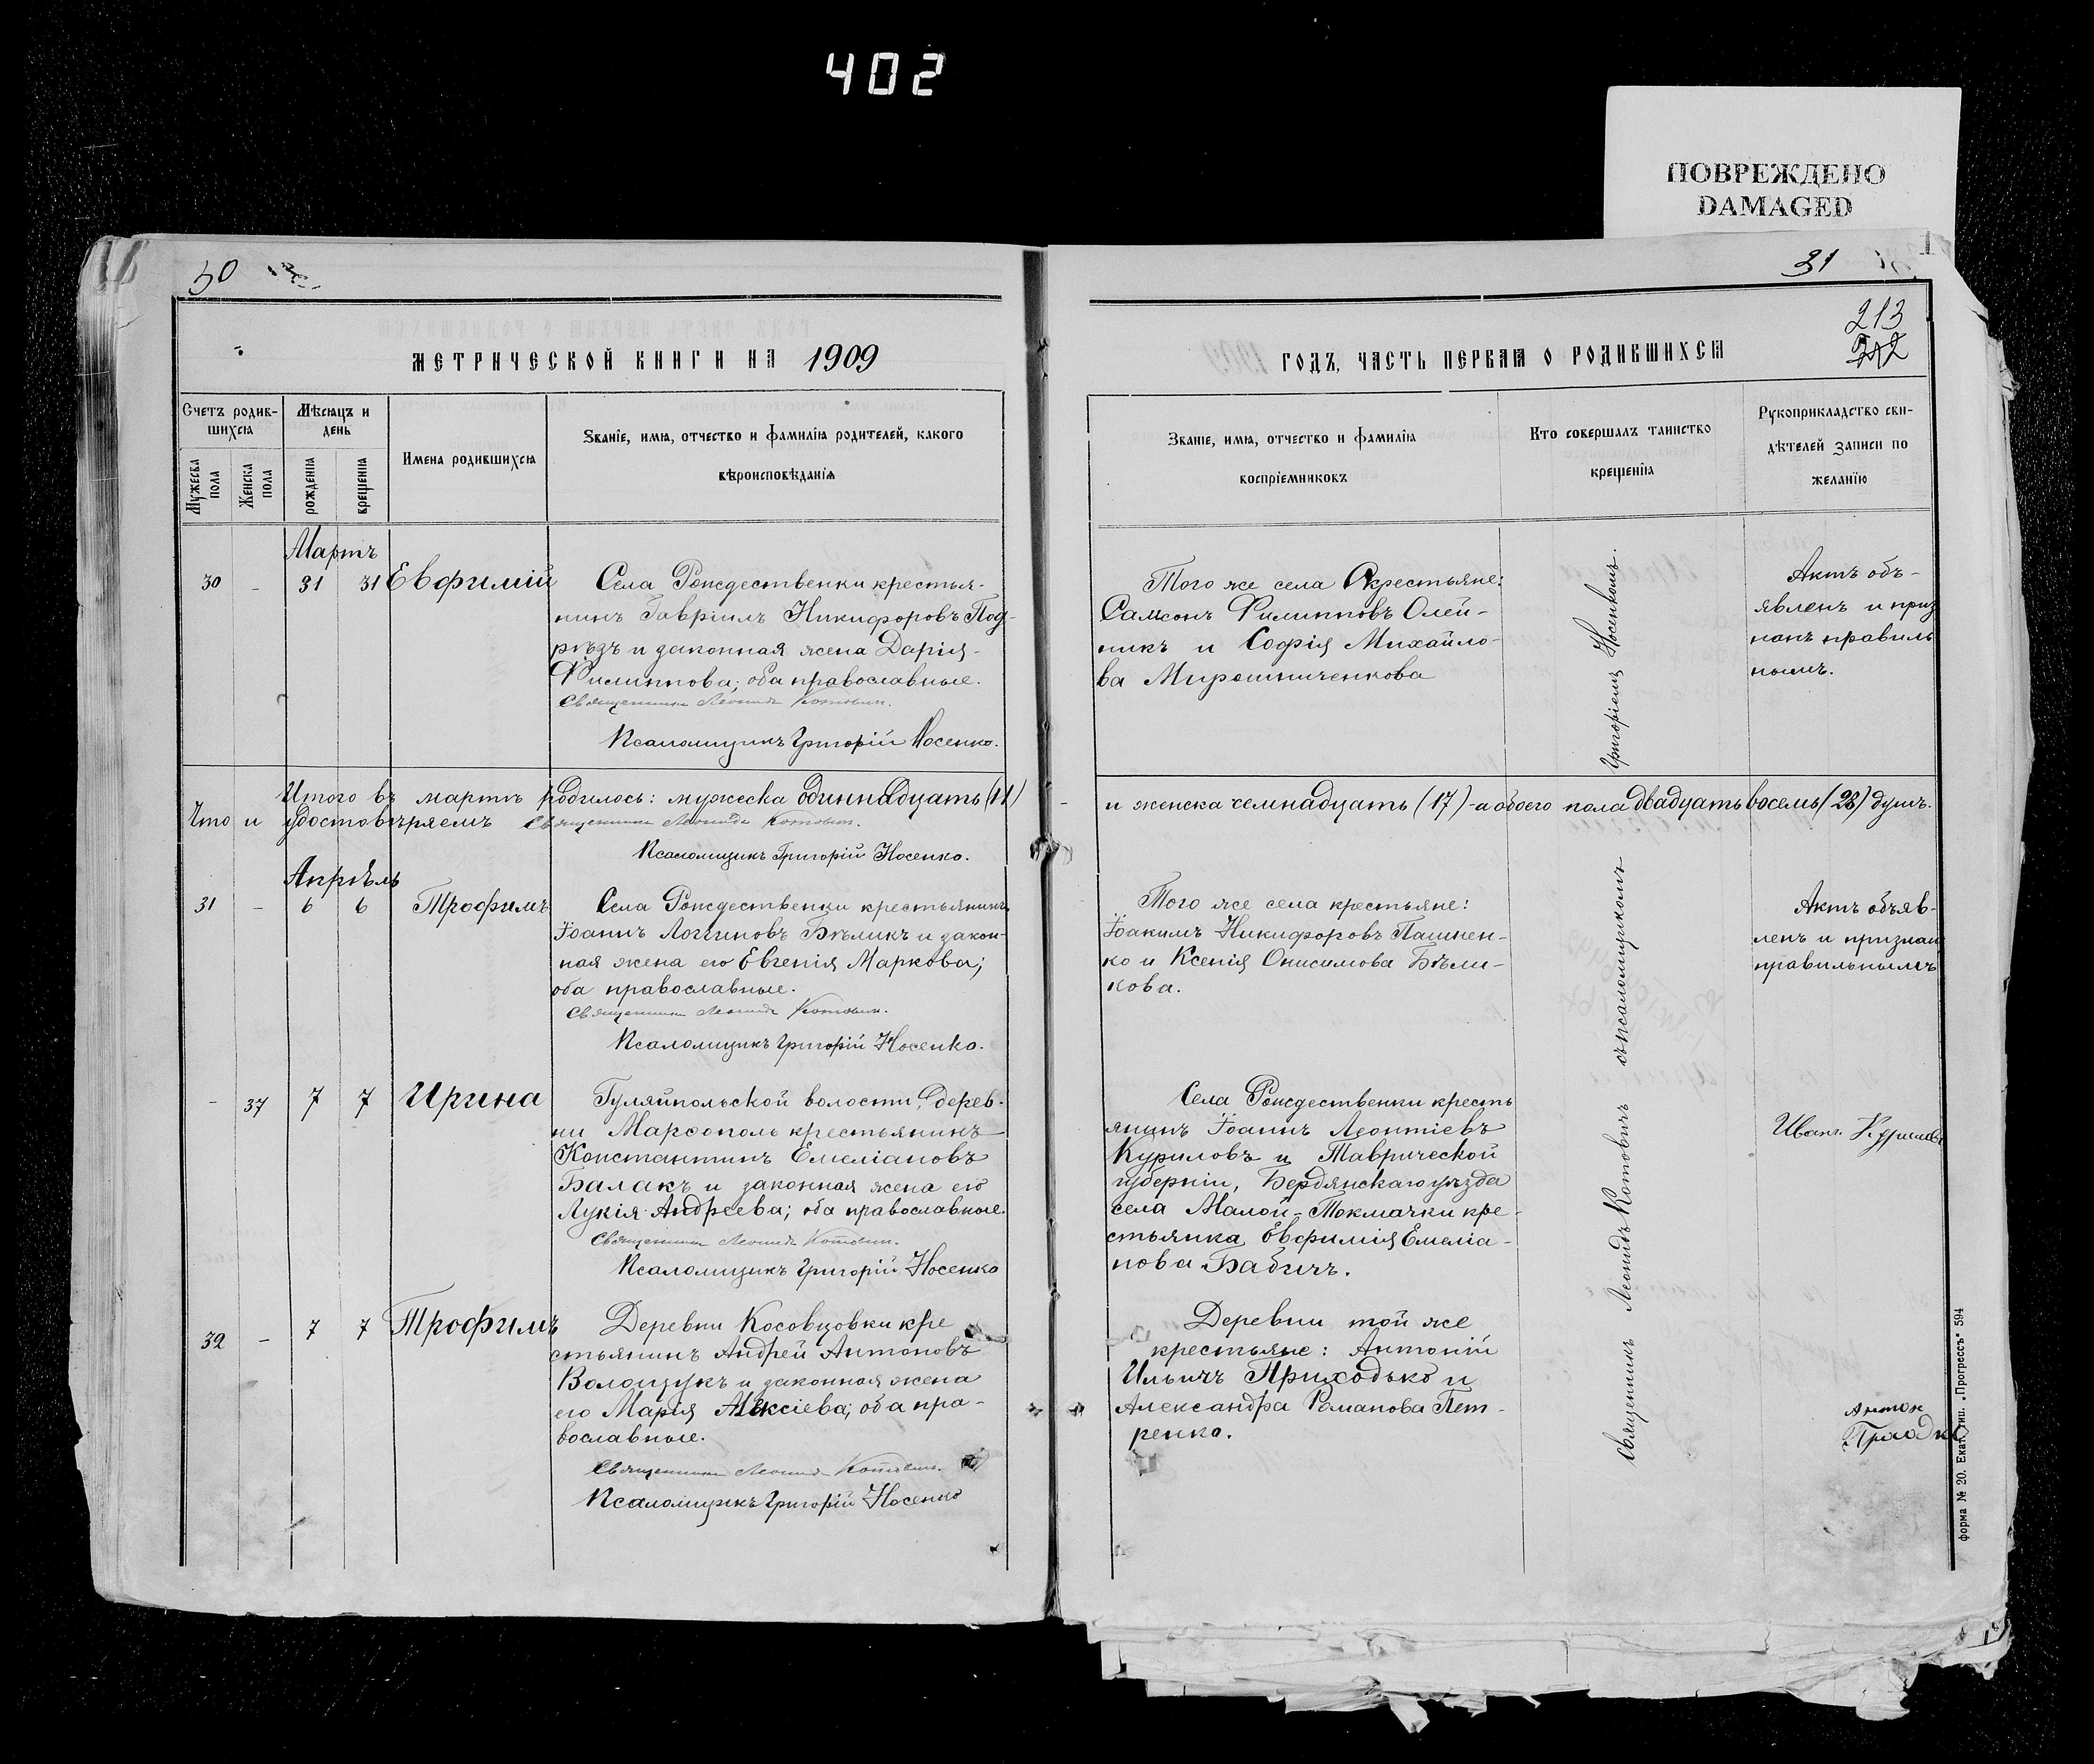 402
ПОВРЕЖДЕНО
DAMAGED
30
МЕТРИЧЕСКОЙ КНИГИ НА 1909
Счетъ родив-
шихся
Мѣсяцъ и
день
Мужеска
пола
Женска
пола
рожденія
крещенія
Имена родившихся
Званіе, имя, отчество и фамилія родителей, какого
вѣроисповѣданія
Мартъ
30 - 31 31 Евфимій
Села Рождественки крестья-
нинъ Гавріилъ Никифоровъ Под-
рѣзъ и законная жена Дарія
Филиппова; оба православные.
Священникъ Леонидъ Котовичъ.
Псаломщикъ Григорій Носенко.
Итого въ мартѣ родилось: мужеска одиннадцать (11)
Что и удостовѣряемъ Священникъ Леонидъ Котовичъ.
Псаломщикъ Григорій Носенко.
Апрѣль
31 - 6 6 Трофимъ
Села Рождественки крестьянинъ
Іоаннъ Логгиновъ Бѣликъ и закон-
ная жена его Евгенія Маркова;
оба православные.
Священникъ Леонидъ Котовичъ.
Псаломщикъ Григорій Носенко.
- 37 7 7 Ирина
Гуляйпольской волости, дерев-
ни Марфополь крестьянинъ
Константинъ Емеліановъ
Балакъ и законная жена его
Лукія Андреева; оба православные.
Священникъ Леонидъ Котовичъ.
Псаломщикъ Григорій Носенко
32 - 7 7 Трофимъ
Деревни Косовцовки кре
стьянинъ Андрей Антоновъ
Волощукъ и законная жена
его Марія Алексіева; оба пра-
вославные.
Священникъ Леонидъ Котовичъ.
Псаломщикъ Григорій Носенко
31
213
ГОДЪ, ЧАСТЬ ПЕРВАЯ О РОДИВШИХСЯ
Званіе, имя, отчество и фамилія
воспріемниковъ
Кто совершалъ таинство
крещенія
Рукоприкладство сви-
дѣтелей записи по
желанію
Того же села крестьяне:
Самсонъ Филипповъ Олей-
никъ и Софія Михайло-
ва Мирошниченкова
Актъ объ-
явленъ и приз
нанъ правиль
нымъ.
и женска семнадцать (17) - а обоего пола двадцать восемь (28) душъ.
Того же села крестьяне:
Іоакимъ Никифоровъ Пашнен-
ко и Ксенія Онисимова Бѣли-
кова.
Актъ объяв-
ленъ и признан
правильнымъ
Села Рождественки кресть
янинъ Іоаннъ Леонтіевъ
Куриловъ и Таврической
губерніи, Бердянскаго уѣзда
села Малой-Токмачки кре-
стьянка Евфимія Емеліа-
нова Бабичъ.
Иванъ Куриловъ
Деревни той же
крестьяне: Антоній
Ильичъ Приходько и
Александра Романова Пет-
ренко.
Антон
Священникъ Леонидъ Котовичъ съ псаломщикомъ Григоріемъ Носенкомъ.
форма № 20. Екат. тип. „Прогрессъ" 594